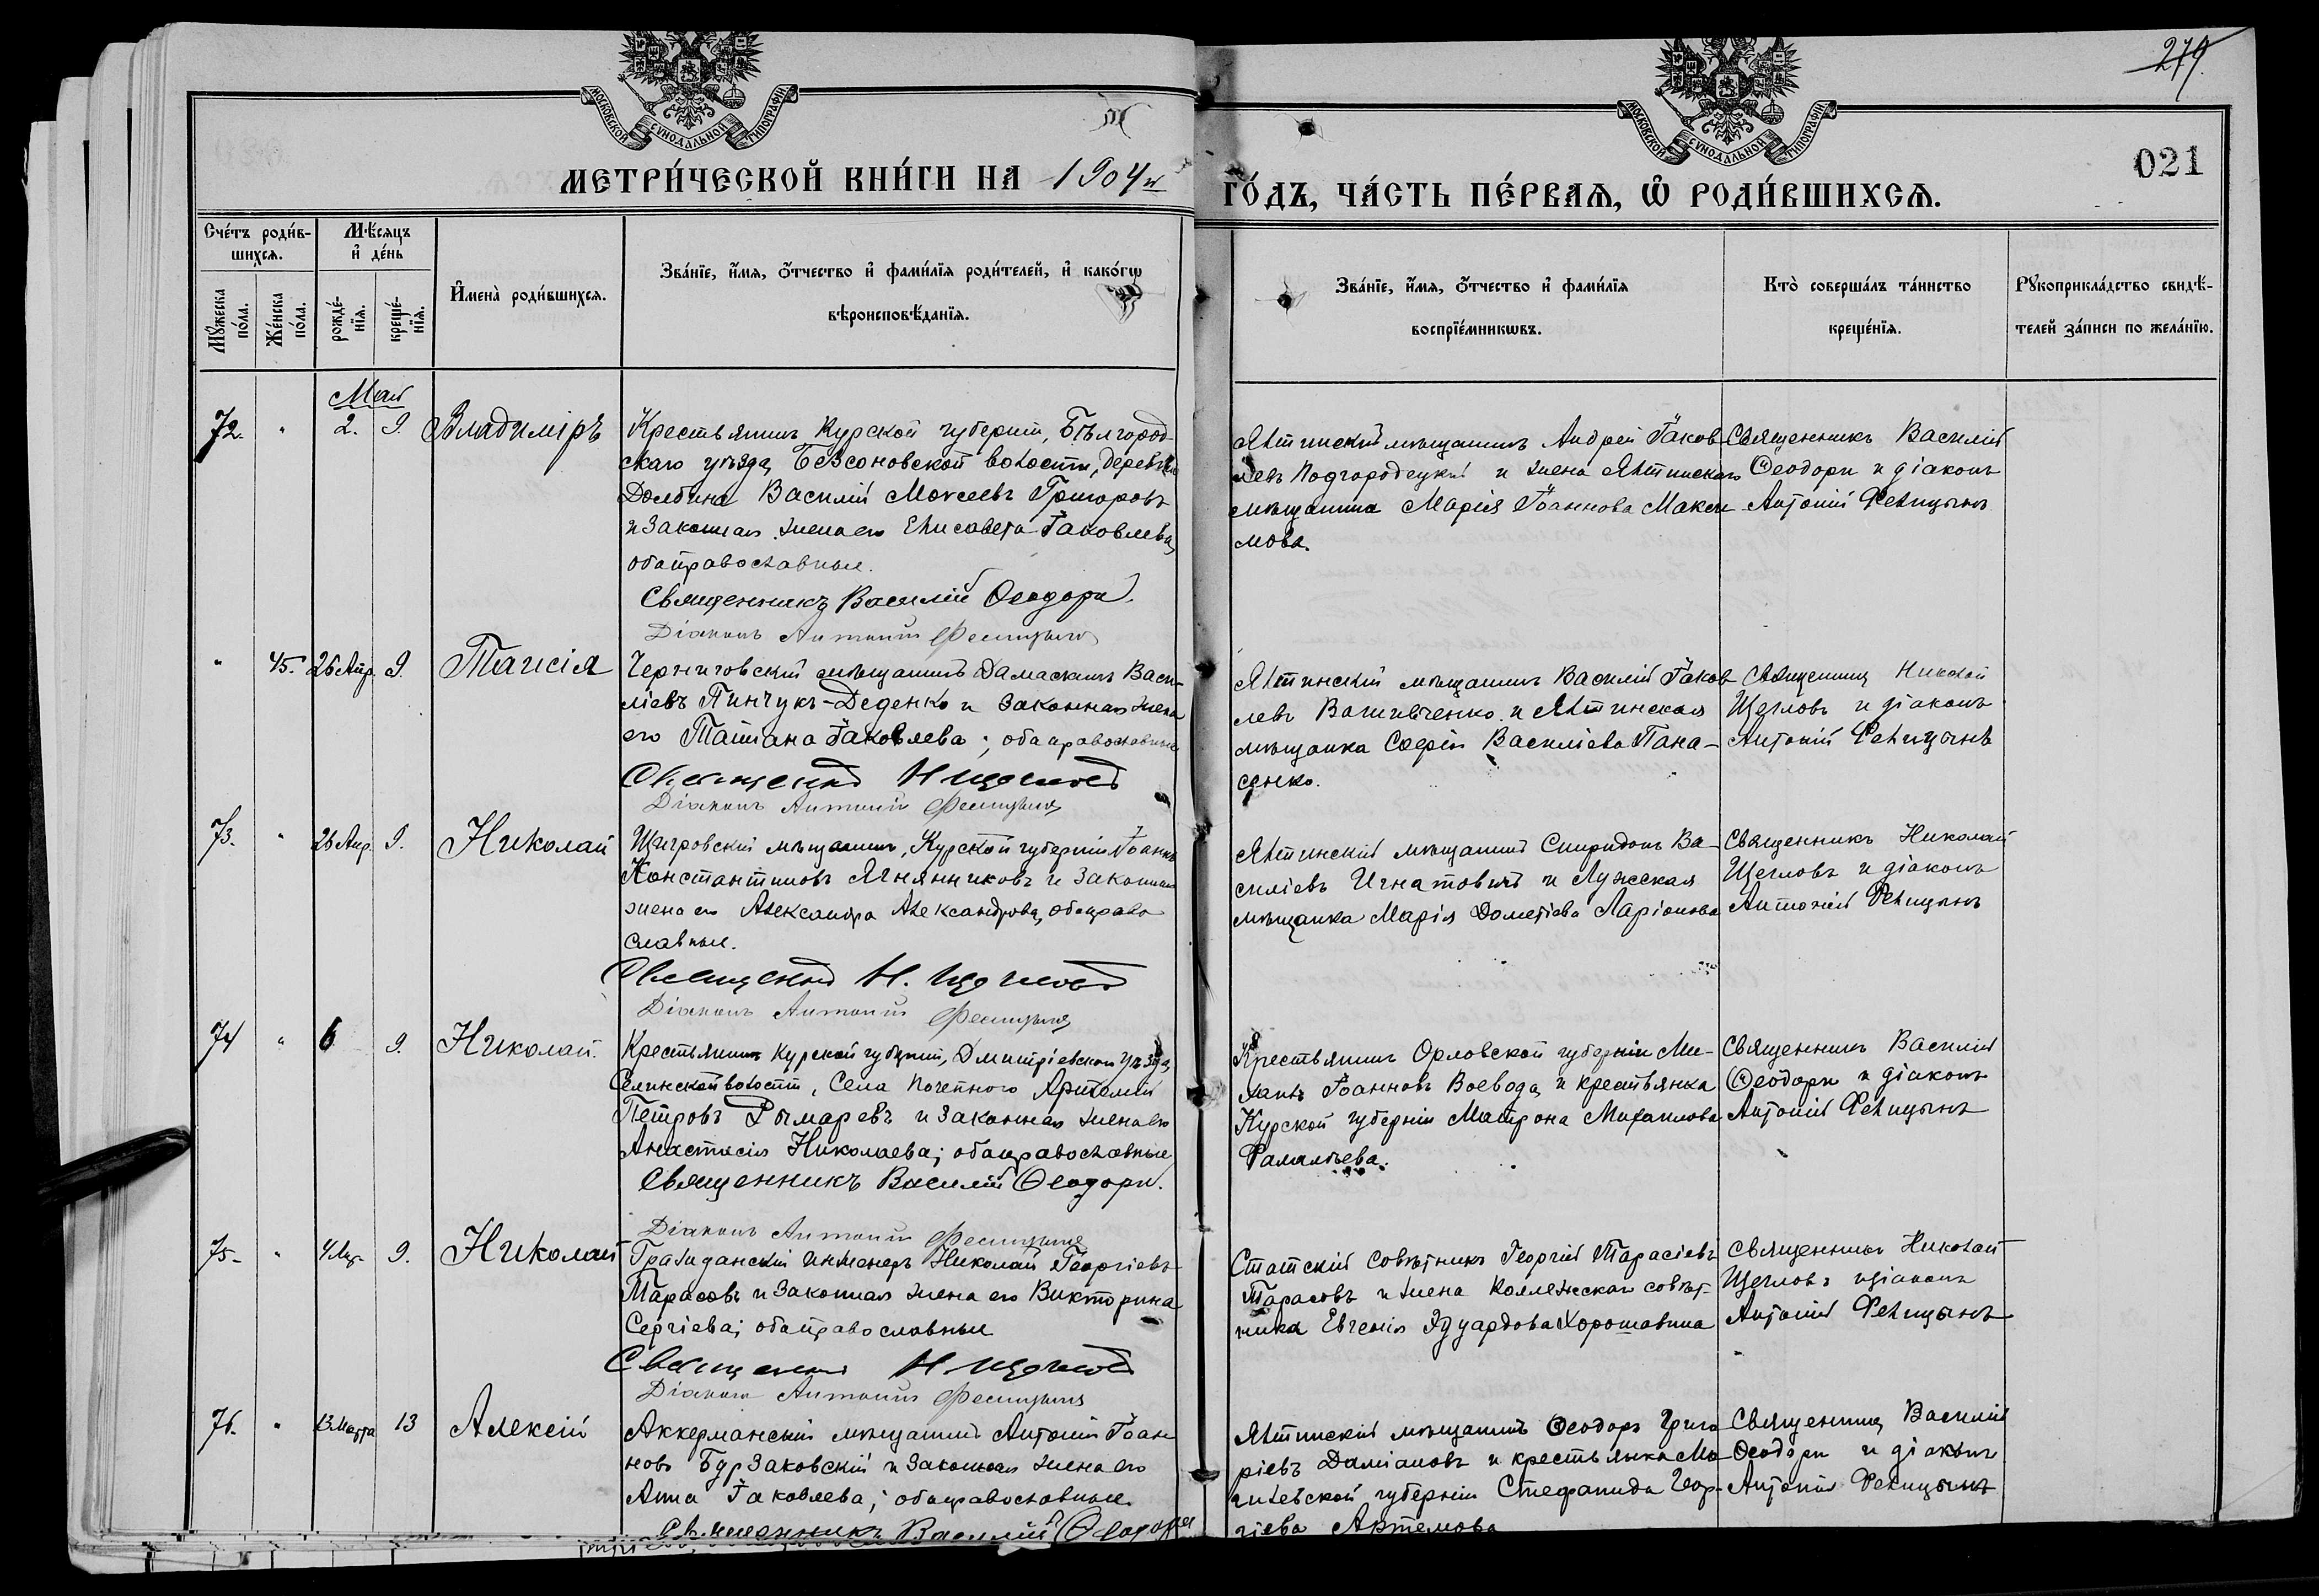 279.
021
МОСКОВСКОЙ СѴНОДАЛЬНОЙ ТИПОГРАФІИ
МОСКОВСКОЙ СѴНОДАЛЬНОЙ ТИПОГРАФІИ
МЕТРИ́ЧЕСКОЙ КНИ́ГИ НА 1904й
ГО́ДЪ, ЧА́СТЬ ПЕ́РВАѦ, Ѡ҆ РОДИ́ВШИХСѦ.
Сче́тъ роди́в-
шихсѧ.
Мѣ́сѧцъ
и҆ де́нь
Мꙋ́жеска по́ла.
Же́нска по́ла.
рожде́-нїѧ.
креще́-нїѧ.
И҆мена̀ роди́вшихсѧ.
Зва́нїе, и҆́мѧ, ѻ҆́тчество и҆ фами́лїѧ роди́телей, и҆ како́гѡ
вѣроисповѣ́данїѧ.
Зва́нїе, и҆́мѧ, ѻ҆́тчество и҆ фами́лїѧ
воспрїе́мникѡвъ.
Кто̀ соверша́лъ та́инство
креще́нїѧ.
Рꙋкоприкла́дство свидѣ́-
телей за́писи по жела́нїю.
Май
72. " 2. 9. Владиміръ
Крестьянинъ Курской губерніи, Бѣлгород-
скаго уѣзда, Безсоновской волости, деревни
Долбина Василій Моисеевъ Григоровъ
и законная жена его Елисавета Іаковлева,
оба православные.
Священникъ Василій Ѳеодори.
Діаконъ Антоній Феницынъ
Ялтинскій мѣщанинъ Андрей Іаков-
левъ Подгородецкій и жена Ялтинскаго
мѣщанина Марія Іоаннова Макси-
мова.
Священникъ Василій
Ѳеодори и діаконъ
Антоній Феницынъ
" 45. 26 Апр. 9. Таисія
Черниговскій мѣщанинъ Дамаскинъ Васи-
ліевъ Пинчукъ-Деденко и законная жена
его Татіана Іаковлева; оба православные
Священникъ Н Щегловъ
Діаконъ Антоній Феницынъ
Ялтинскій мѣщанинъ Василій Іаков-
левъ Вашивченко и Ялтинская
мѣщанка Софія Василіева Пана-
сенко.
Священникъ Николай
Щегловъ и діаконъ
Антоній Феницынъ
73. " 26 Апр. 9. Николай
Щигровскій мѣщанинъ, Курской губерніи Іоаннъ
Константиновъ Ягнянниковъ и законная
жена его Александра Александрова, оба право
славные.
Священникъ Н. Щегловъ
Діаконъ Антоній Феницынъ
Ялтинскій мѣщанинъ Спиридонъ Ва-
силіевъ Игнатовичъ и Лужская
мѣщанка Марія Дометіева Ларіонова
Священникъ Николай
Щегловъ и діаконъ
Антоній Феницынъ
74 " 6 9. Николай.
Крестьянинъ Курской губерніи, Дмитріевскаго уѣзда,
Селинской волости, села Почепного Артемій
Петровъ Рымаревъ и законная жена его
Анастасія Николаева; оба православные
Священникъ Василій Ѳеодори.
Діаконъ Антоній Феницынъ
Крестьянинъ Орловской губерніи Ми-
хаилъ Іоанновъ Воевода, и крестьянка
Курской губерніи Матрона Михаилова
Фамильева.
Священникъ Василій
Ѳеодори и діаконъ
Антоній Феницынъ
75- " 9. Николай
Гражданскій инженеръ Николай Георгіевъ
Тарасовъ и законная жена его Викторина
Сергіева; оба православные
Священникъ Н Щегловъ
Діаконъ Антоній Феницынъ
Статскій Совѣтникъ Георгій Тарасіевъ
Тарасовъ и жена Коллежскаго совѣт-
ника Евгенія Эдуардова Хорошавина
Священникъ Николай
Щегловъ и діаконъ
Антоній Феницынъ
76. " 13 Марта 13 Алексій
Аккерманскій мѣщанинъ Антоній Іоан
новъ Бурзаковскій и законная жена его
Анна Іаковлева; оба православные.
Священникъ Василій Ѳеодори
Ялтинскій мѣщанинъ Ѳеодоръ Григо
ріевъ Даміановъ и крестьянка Мо
гилевской губерніи Стефанида Геор-
гіева Артемова
Священникъ Василій
Ѳеодори и діаконъ
Антоній Феницынъ